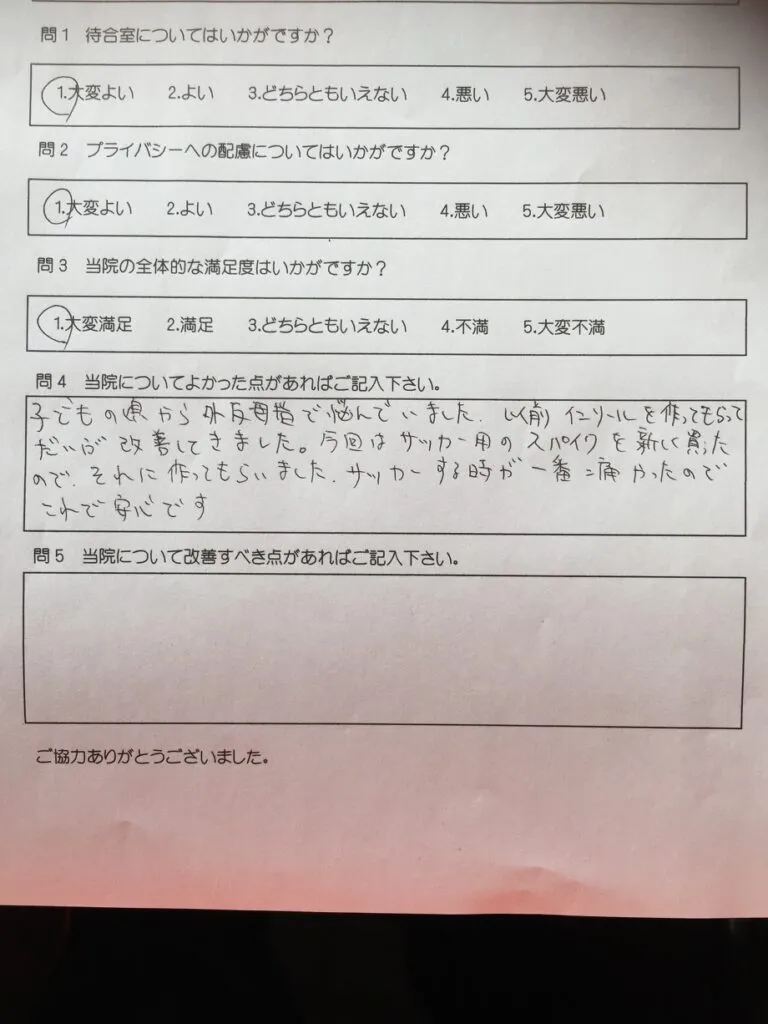 問1 待合室についてはいかがですか?
1.大変よい 2.よい 3.どちらともいえない 4.悪い 5.大変悪い
問2 プライバシーへの配慮についてはいかがですか?
1.大変よい 2.よい 3.どちらともいえない 4.悪い 5.大変悪い
問3 当院の全体的な満足度はいかがですか?
1.大変満足 2.満足 3.どちらともいえない 4.不満 5.大変不満
問4 当院についてよかった点があればご記入下さい。
子どもの頃から外反母指で悩んでいました。以前インソールを作ってもらって
だいぶ改善してきました。今回はサッカー用のスパイクを新しく買った
ので、それに作ってもらいました。サッカーする時が一番痛かったので
これで安心です
問5 当院について改善すべき点があればご記入下さい。
ご協力ありがとうございました。